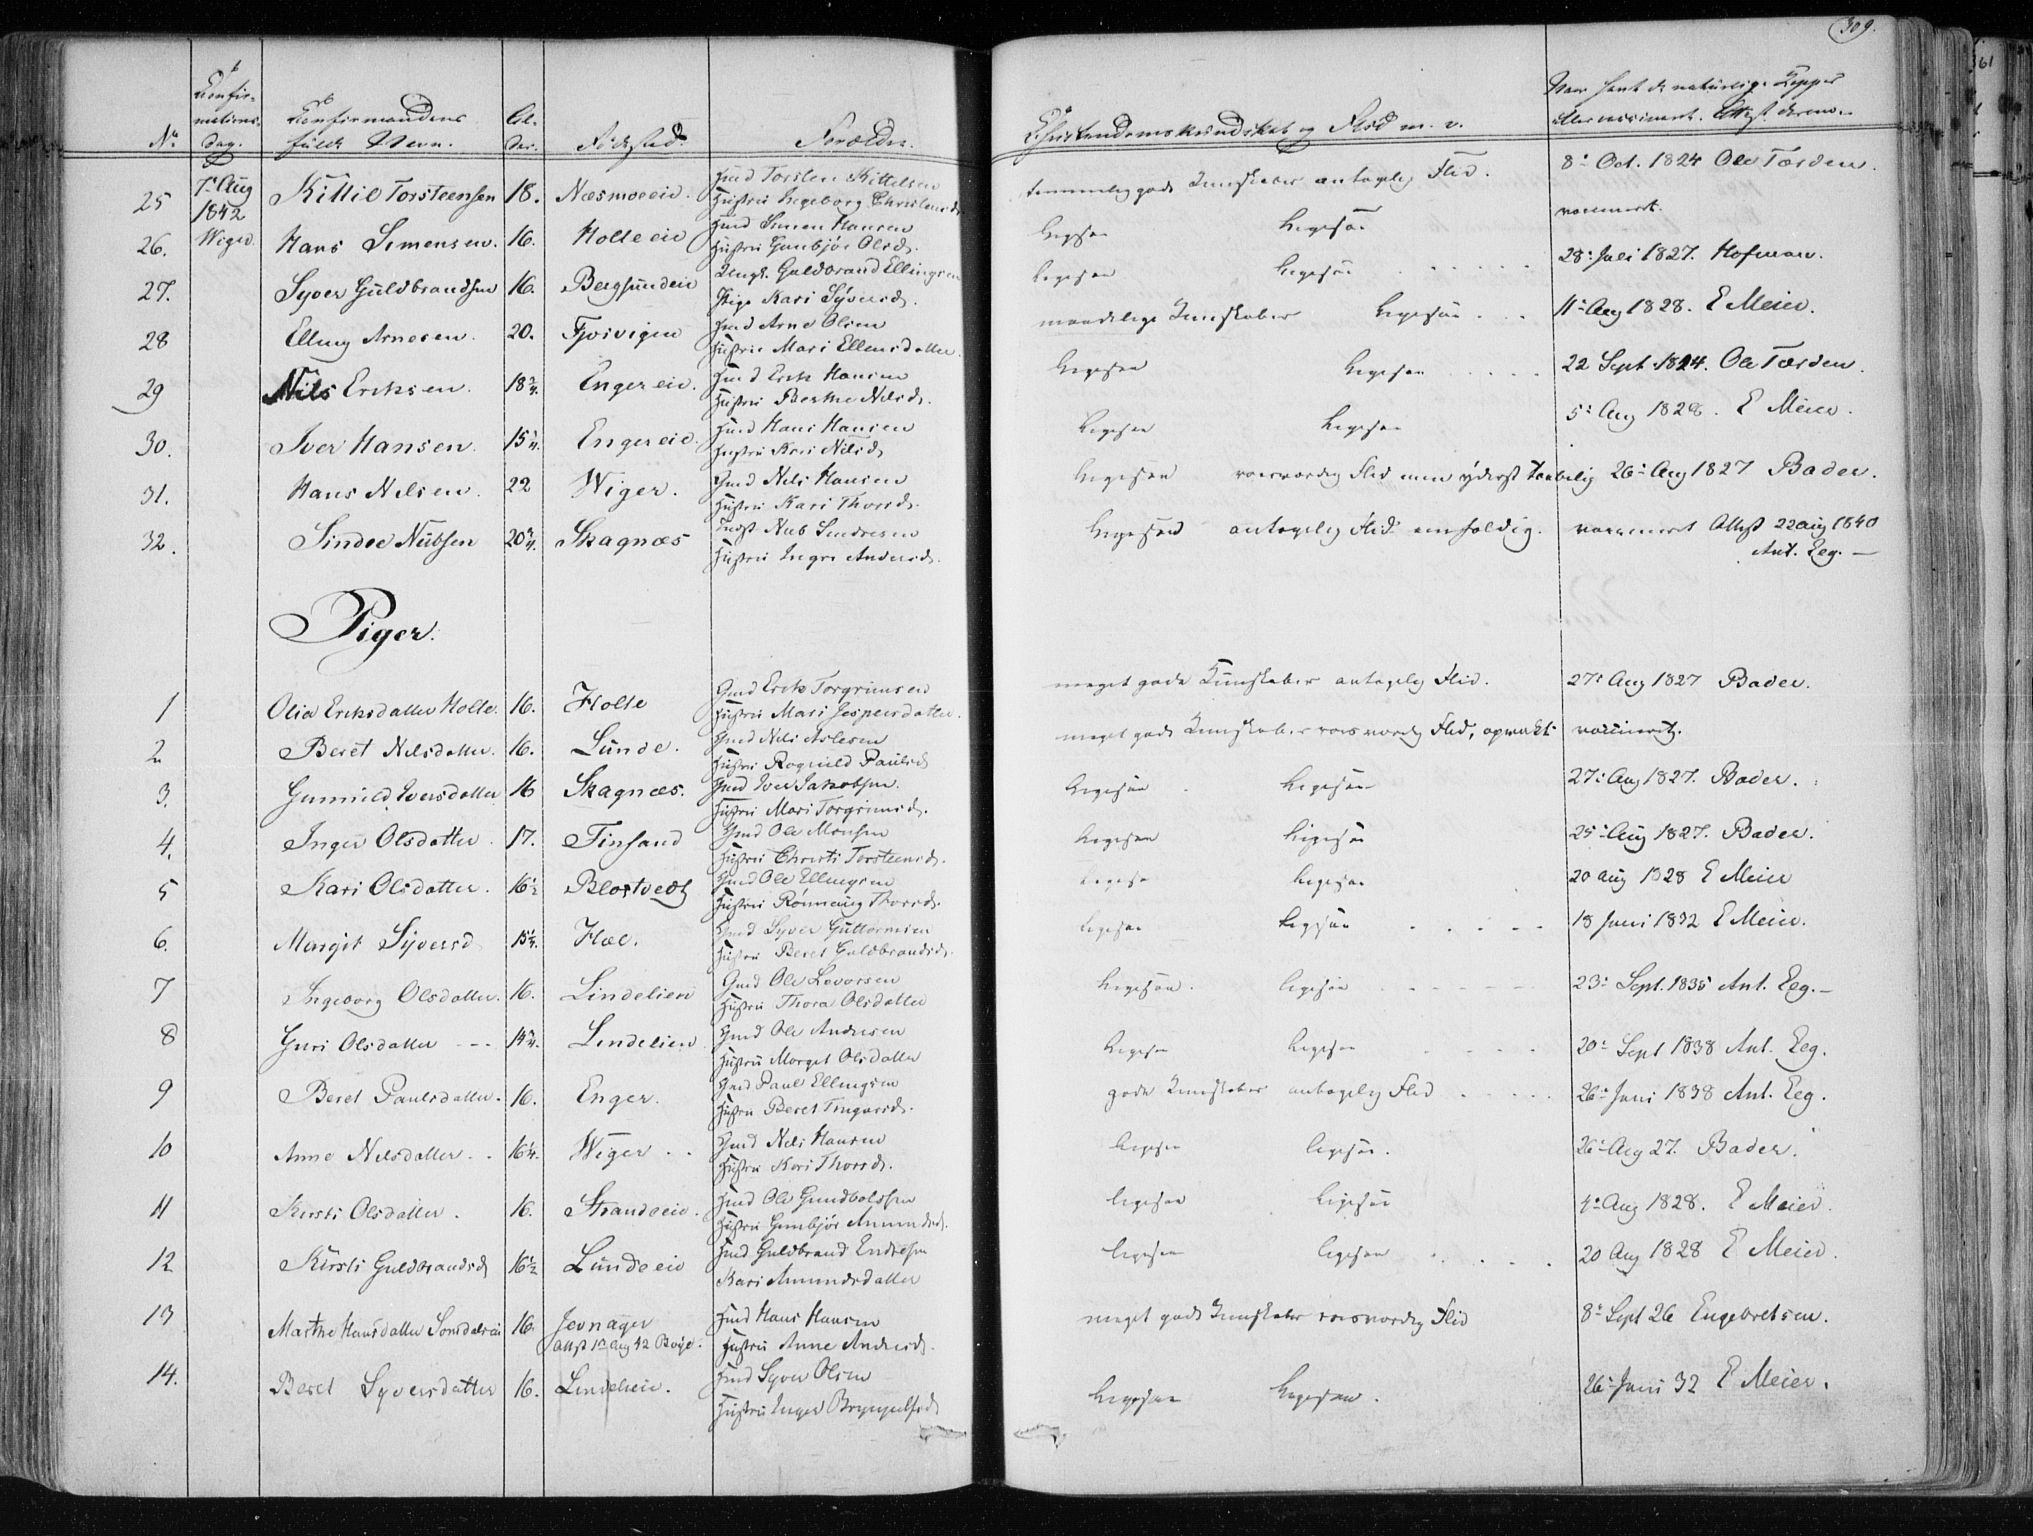 309.
Confir-
mations-
Dag.
No
Confirmandens
fulde Navn.
Al-
der.
Fødested.
Forældre.
Christendomskundskab og Flid m. v.
Naar havt de naturlige Kopper
eller vaccineret. Attest derom.
25 7de Aug 1842 Kittil Torsteensen 18. Næsmoeeie. Hmd Torsten Kittelsen
Hustru Ingeborg Christensd.
temmelig gode Kundskaber antagelig Flid. 8de Oct. 1824 Ole Tørden
vaccineret.
26. Wiger. Hans Simensen. 16. Holleeie Hmd Simen Hansen
Hustru Gunbjør Olsd.
ligesaa ligesaa
27. Syver Guldbrandsen 16. Bergsundeie Ungk. Guldbrand Ellingsen
Pige Kari Syversd.
ligesaa ligesaa 28de Juli 1827. Hofman.
28 Elling Arnesen. 20. Fjoivigen Hmd Arne Olsen
Hustru Mari Ellensdatter.
maadelige Kundskaber ligesaa 11te Aug 1828. E Meier.
29 Nils Eriksen. 18 3/4. Engereie. Hmd Erik Hansen
Hustru Berthe Nilsd.
ligesaa ligesaa 22 Sept 1824. Ole Tørden.
30. Iver Hansen. 15 1/4. Engereie. Hmd Hans Hansen
Hustru Kari Nilsd.
ligesaa ligesaa 5te Aug 1828. E Meier.
31. Hans Nilsen. 22 Wiger. Gmd Nils Hansen
Hustru Kari Thorsd.
ligesaa roesværdig Flid men yderst taabelig 26de Aug 1827 Bader.
32. Sindre Nubsen 20 3/4. Skagnæs Nub Sindresen
Hustru Ingri Andersd.
ligesaa antagelig Flid eenfoldig. vaccineret Attest 22 Aug 1840
Ant. Eeg. —
Piger.
1 Olia Eriksdatter Holte. 16. Holte Gmd Erik Torgrimsen
Hustru Mari Jespersdatter.
meget gode Kundskaber antagelig Flid. 27de Aug 1827 Bader.
2 Beret Nilsdatter. 16. Lunde. Gmd Nils Aslesen
Hustru Rognild Paulsd.
meget gode Kundskaber roesværdig Flid, opvakt vaccineret.
3. Gunnild Iversdatter 16 Skagnæs. Gmd Iver Jakobsen.
Hustru Mari Torgrimsd.
ligesaa ligesaa 27de Aug 1827. Bader.
4. Inger Olsdatter. 17. Finsand Gmd Ole Monsen
Hustru Christi Torsteensd.
ligesaa ligesaa 25de Aug 1827. Bader.
5 Kari Olsdatter. 16 1/2 Blostvedt Gmd Ole Ellingsen
Hustru Rønnaug Thorsd.
ligesaa ligesaa 20 Aug 1828 E Meier
6. Margit Syversd 15 1/4. Hæl. Gmd Syver Guttormsen
Hustru Beret Guldbrandsd.
ligesaa ligesaa 18 Juni 1832 E Meier.
7 Ingeborg Olsdatter. 16. Lindelien Gmd Ole Levorsen
Hustru Thora Olsdatter
ligesaa. ligesaa 23de Sept. 1835 Ant. Eeg. —
8 Guri Olsdatter 14 3/4. Lindelien Gmd Ole Andersen
Hustru Margit Olsdatter
ligesaa ligesaa 20de Sept 1838 Ant. Eeg.
9 Beret Paulsdatter. 16. Enger. Gmd Paul Ellingsen
Hustru Beret
gode Kundskaber antagelig Flid 26de Juni 1838 Ant. Eeg.
10 Anne Nilsdatter. 16 1/4. Wiger Gmd Nils Hansen
Hustru Kari Thorsd.
ligesaa ligesaa. 26de Aug 27. Bader.
11 Kirsti Olsdatter. 16. Strandeeie. Hmd Ole Gundbolsen
Hustru Gunbjør Amundsd.
ligesaa ligesaa 4de Aug 1828. E Meier.
12 Kirsti Guldbrandsd 16 1/2 Lundeeie Hmd Guldbrand Endresen
Kari Amundsdatter
ligesaa ligesaa 20 Aug 1828 E Meier.
13 Marthe Hansdatter 16. Jevnager Hmd Hans Hansen
Attest 1ste Aug 42 Hustru Anne Andersd.
meget gode Kundskaber roesværdig Flid 8de Sept 26 Engebretsen.
14. Beret Syversdatter 16. Lindelieie. Hmd Syver Olsen
Hustru Inger Brynjulfsd
ligesaa ligesaa. 26de Juni 32 E Meier.
361